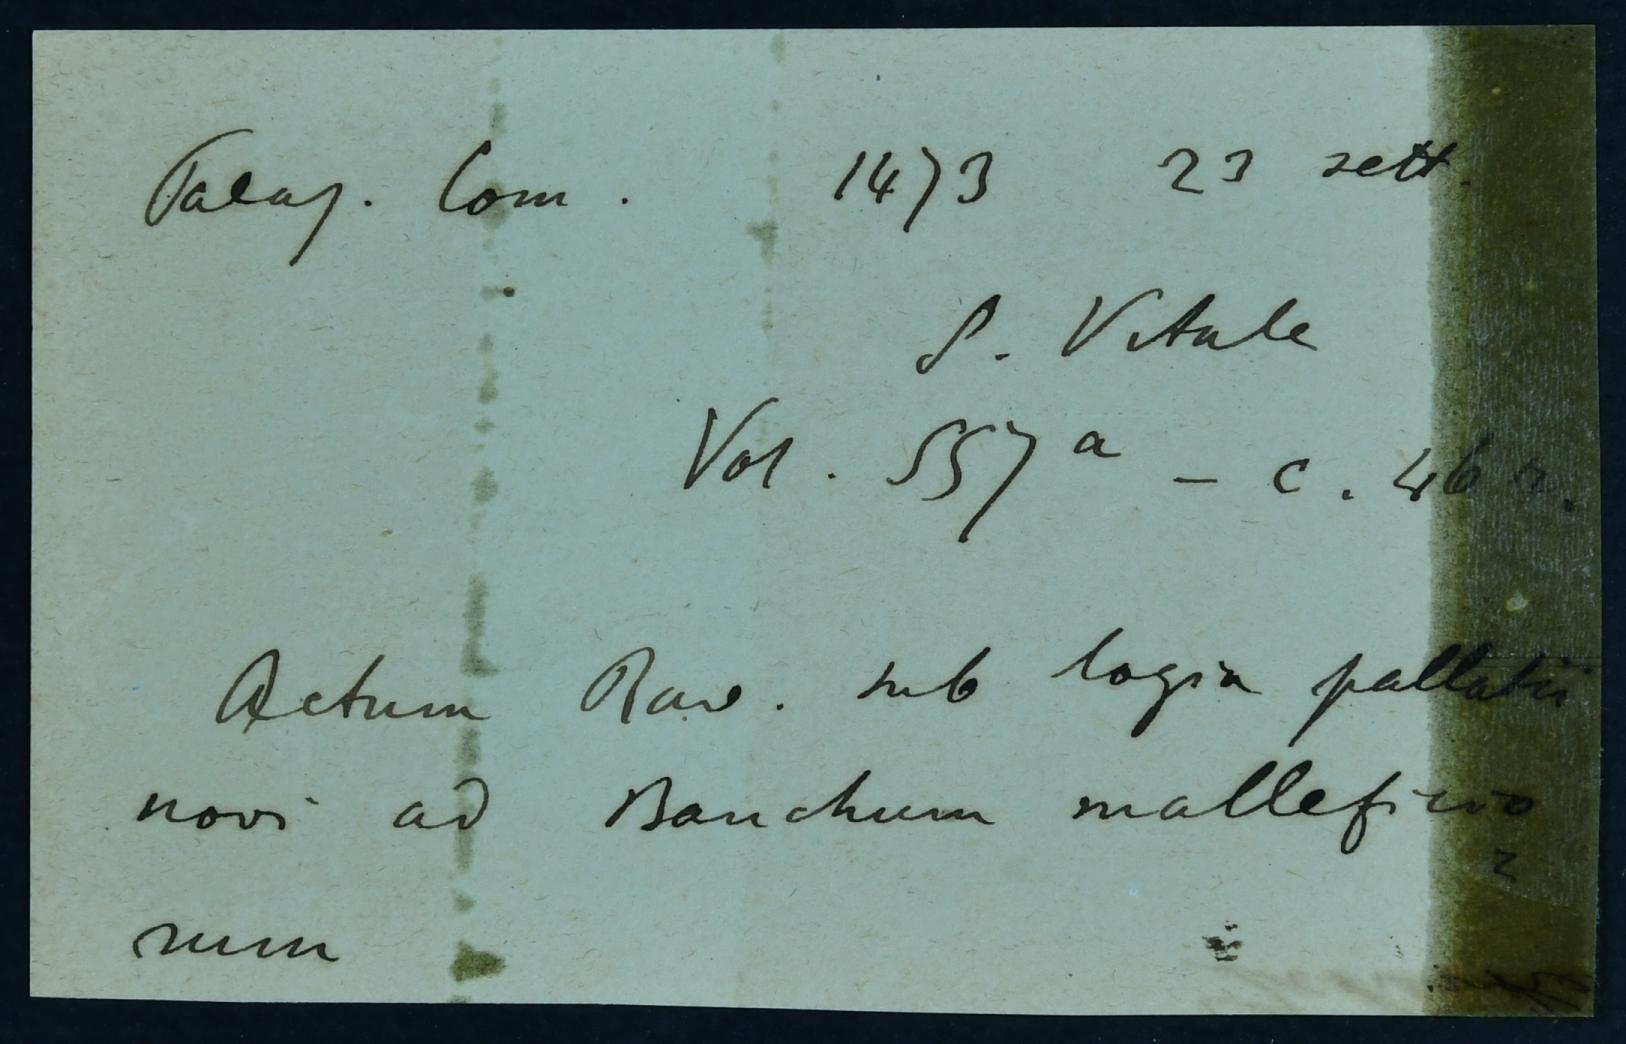 Palaz. Com. 1473 23 sett.
S. Vitale
Vol. 557 a - c. 46 r.
Actum Rav. sub logia pallatii
novi ad Banchum malleficio
rum